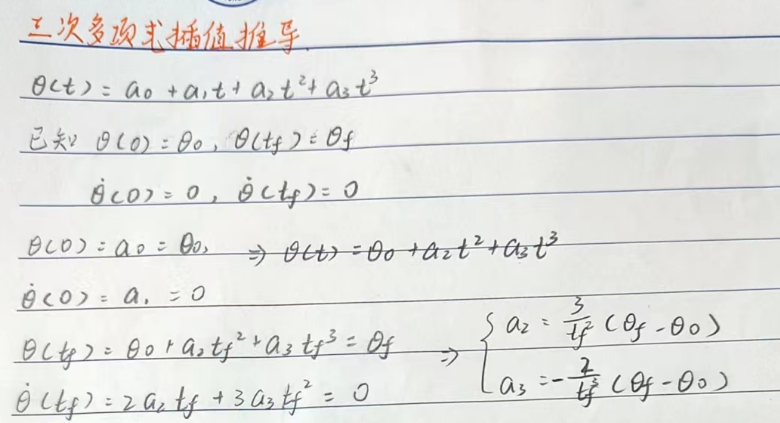 三次多项式插值推导
θ(t) = a₀ + a₁t + a₂t² + a₃t³
已知 θ(0) = θ₀, θ(t_f) = θ_f
θ̇(0) = 0, θ̇(t_f) = 0
θ(0) = a₀ = θ₀, ⇒ θ(t) = θ₀ + a₂t² + a₃t³
θ̇(0) = a₁ = 0
θ(t_f) = θ₀ + a₂t_f² + a₃t_f³ = θ_f ⇒ { a₂ = 3/t_f² (θ_f - θ₀)
θ̇(t_f) = 2a₂t_f + 3a₃t_f² = 0 a₃ = -2/t_f³ (θ_f - θ₀)